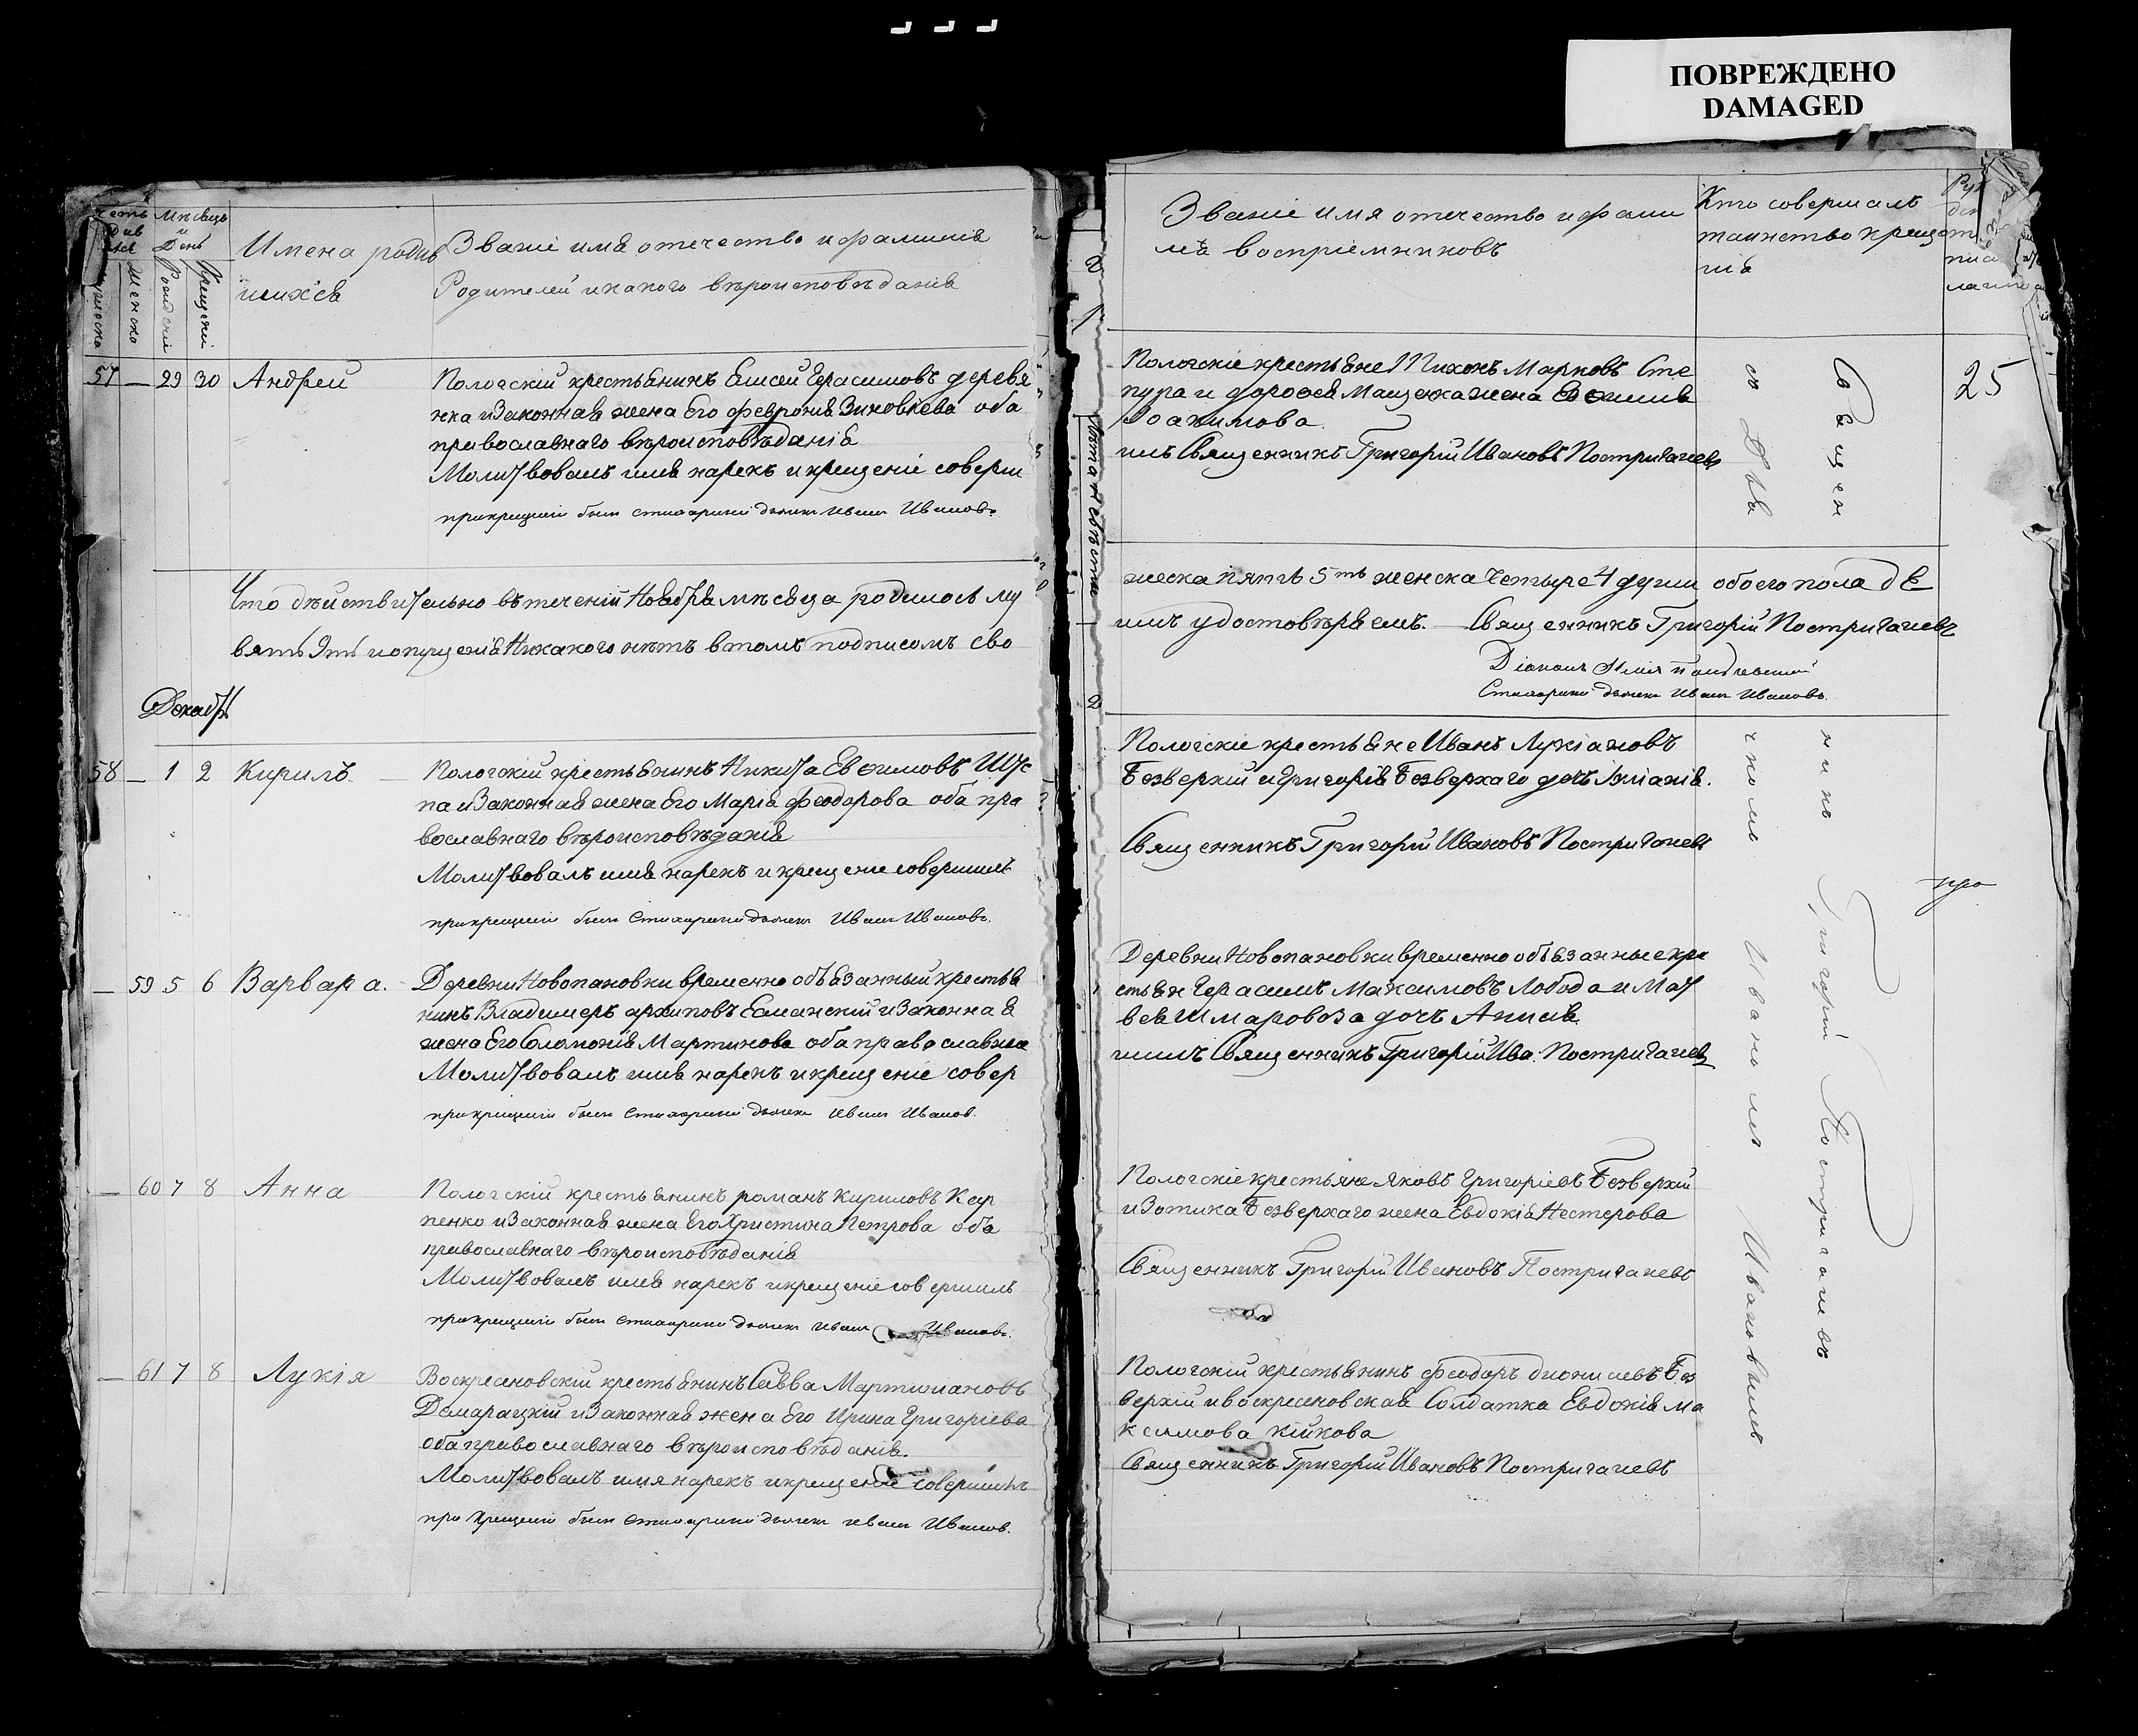 ПОВРЕЖДЕНО
DAMAGED
Мѣсяцъ
и
День
Рожденіе
Крещеніе
Женска
Имена родив
шихся
Званіе имя отечество и фамилія
Родителей и какого вѣроисповѣданія
57 — 29 30 Андрей
Пологскій крестьянинъ Елисей Герасимовъ деревя
нка и Законная жена Его Феврония Зиновіева оба
православнаго вѣроисповѣданія
Молитвовалъ имя нарекъ и крещеніе соверш
при крещеніи былъ стихарний дьячекъ Иванъ Ивановъ.
Что дѣйствительно въ теченіи Ноября мѣсяца родилось му
вять Эть и опущенія Никакого нѣтъ в томъ подписомъ сво
Декабрь
58 — 1 2 Кирилъ
Пологскій крестьянинъ Никита Евѳимовъ Щу
па и Законная жена Его Марія Феодорова оба пра
вославнаго вѣроисповѣданія
Молитвовалъ имя нарекъ и крещеніе совершилъ
при крещеніи былъ Стихарний дьячекъ Иванъ Ивановъ.
— 59 5 6 Варвара.
Деревни Новопановки временно объязанный крестья
нинъ Владимеръ архиповъ Еланскій и Законная
жена Его Соломонія Мартинова оба православные
Молитвовалъ имя нарекъ и крещеніе совер
при крещеніи былъ Стихарний дьячекъ Иванъ Ивановъ.
— 60 7 8 Анна
Пологскій крестьянинъ романъ Кириловъ Кар
пенко и Законная жена Его Христина Петрова оба
православнаго вѣроисповѣданія
Молитвовалъ имя нарекъ и крещеніе совершилъ
при крещеніи былъ Стихарний дьячекъ Иванъ Ивановъ.
— 61 7 8 Лукія
Воскресеновскій крестьянинъ Савва Мартиніановъ
Домарацкій и Законная жена Его Ирина Григоріева
оба православнаго вѣроисповѣданія.
Молитвовалъ имя нарекъ и крещеніе совершилъ
при Крещеніи былъ Стихарний дьячекъ Иванъ Ивановъ.
Званіе имя отечество и фами
лія воспріемниковъ
Кто совершалъ
таинство креще
нія
Пологскіе крестьяне Тихонъ Марковъ Сте
пура и дороѳея Мащенка жена Евѳимія
Іоакимова
илъ Священникъ Григорій Ивановъ Постригачевъ
25
жеска пять 5ть женска Четыре 4 души обоего пола де
имъ удостовѣряемъ. — Священникъ Григорій Постригачевъ
Стихарний дьячекъ Иванъ Ивановъ.
Пологскіе крестьяне Иванъ Лукіановъ
Безверхій и Григорія Безверхаго дочь Іуліанія.
Священникъ Григорій Ивановъ Постригачевъ
Деревни Новопановки временно объязанные кре
стьян Герасимъ Максимовъ Лобода и Мат
вея Шмаровоза дочь Анисія
шилъ Священникъ Григорій Ива. Постригачевъ
Пологскіе крестьяне Яковъ Григоріевъ Безверхій
и Зотика Безверхаго жена Евдокія Нестерова
Священникъ Григорій Ивановъ Постригачевъ
Пологскій крестьянинъ Феодоръ дионисіевъ Без
верхій и воскресеновская Солдатка Евдокія Ма
ксимова Кійкова
Священникъ Григорій Ивановъ Постригачевъ
Священникъ Григорій Постригачевъ
съ Дьячкомъ Иваномъ Ивановымъ